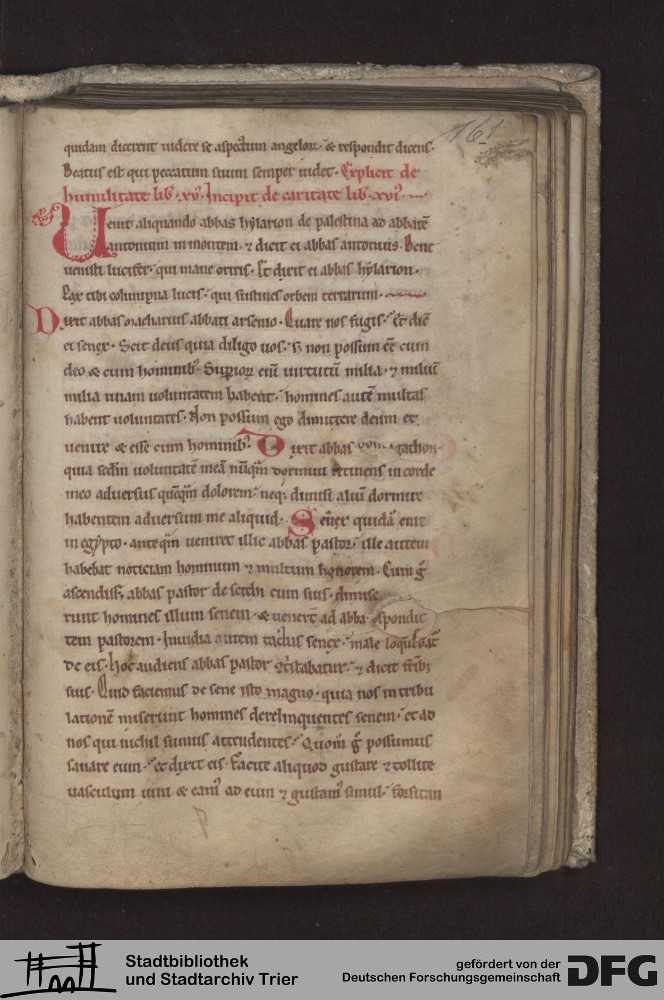 161
quidam dicerent uidere se aspectum angeloꝝ. & respondit dicens.
Beatus est qui peccatum suum semper uidet. Explicit de
humilitate lib. xv. Incipit de caritate lib. xvi.
Uenit aliquando abbas hylarion de palestina ad abbatē
antonium in montem. ⁊ dicit ei abbas antonius. Bene
uenisti lucifer. qui mane oriris. Et dixit ei abbas hylarion.
Pax tibi columpna lucis. qui sustines orbem terrarum.
Dixit abbas macharius abbati arsenio. Quare nos fugis. Et dix̄
ei senex. Scit deus quia diligo uos. s; non possum eē cum
deo & cum hominib; Supꝑioꝝ eni uirtutū milia. ⁊ miliū
milia unam uoluntatem habent. homines autē multas
habent uoluntates. Non possum ego dimittere deum et
uenire & esse cum hominib; Dixit abbas gathon
quia scđm uoluntatē meā nūqͣm dormiui retinens in corde
meo aduersus quēqͣm dolorem. neq; dimisi aliū dormire
habentem aduersum me aliquid. Senex quidā erat
in egypto. anteqͣm ueniret illic abbas pastor. ille autem
habebat noticiam hominum ⁊ multum honorem. Cum g̃
ascendiss; abbas pastor de scithi cum suis. dimise
runt homines illum senem. & uenerūt ad abba
tem pastorem. Inuidia autem tactus senex. male loqueb̄at̄
de eis. Hoc audiens abbas pastor cͦtristabatur. ⁊ dicit fr̄ib;
suis. Quid faciemus de sene isto magno. quia nos in tribu
lationē miserunt homines derelinquentes senem. et ad
nos qui nichil sumus attendentes. Quom̄ g̃ possumus
sanare eum. & dixit eis. Facite aliquod gustare ⁊ tollite
uasculum uini. & eamꝰ ad eum ⁊ gustamꝰ simul. forsitan
Stadtbibliothek
und Stadtarchiv Trier
gefördert von der
Deutschen Forschungsgemeinschaft
DFG